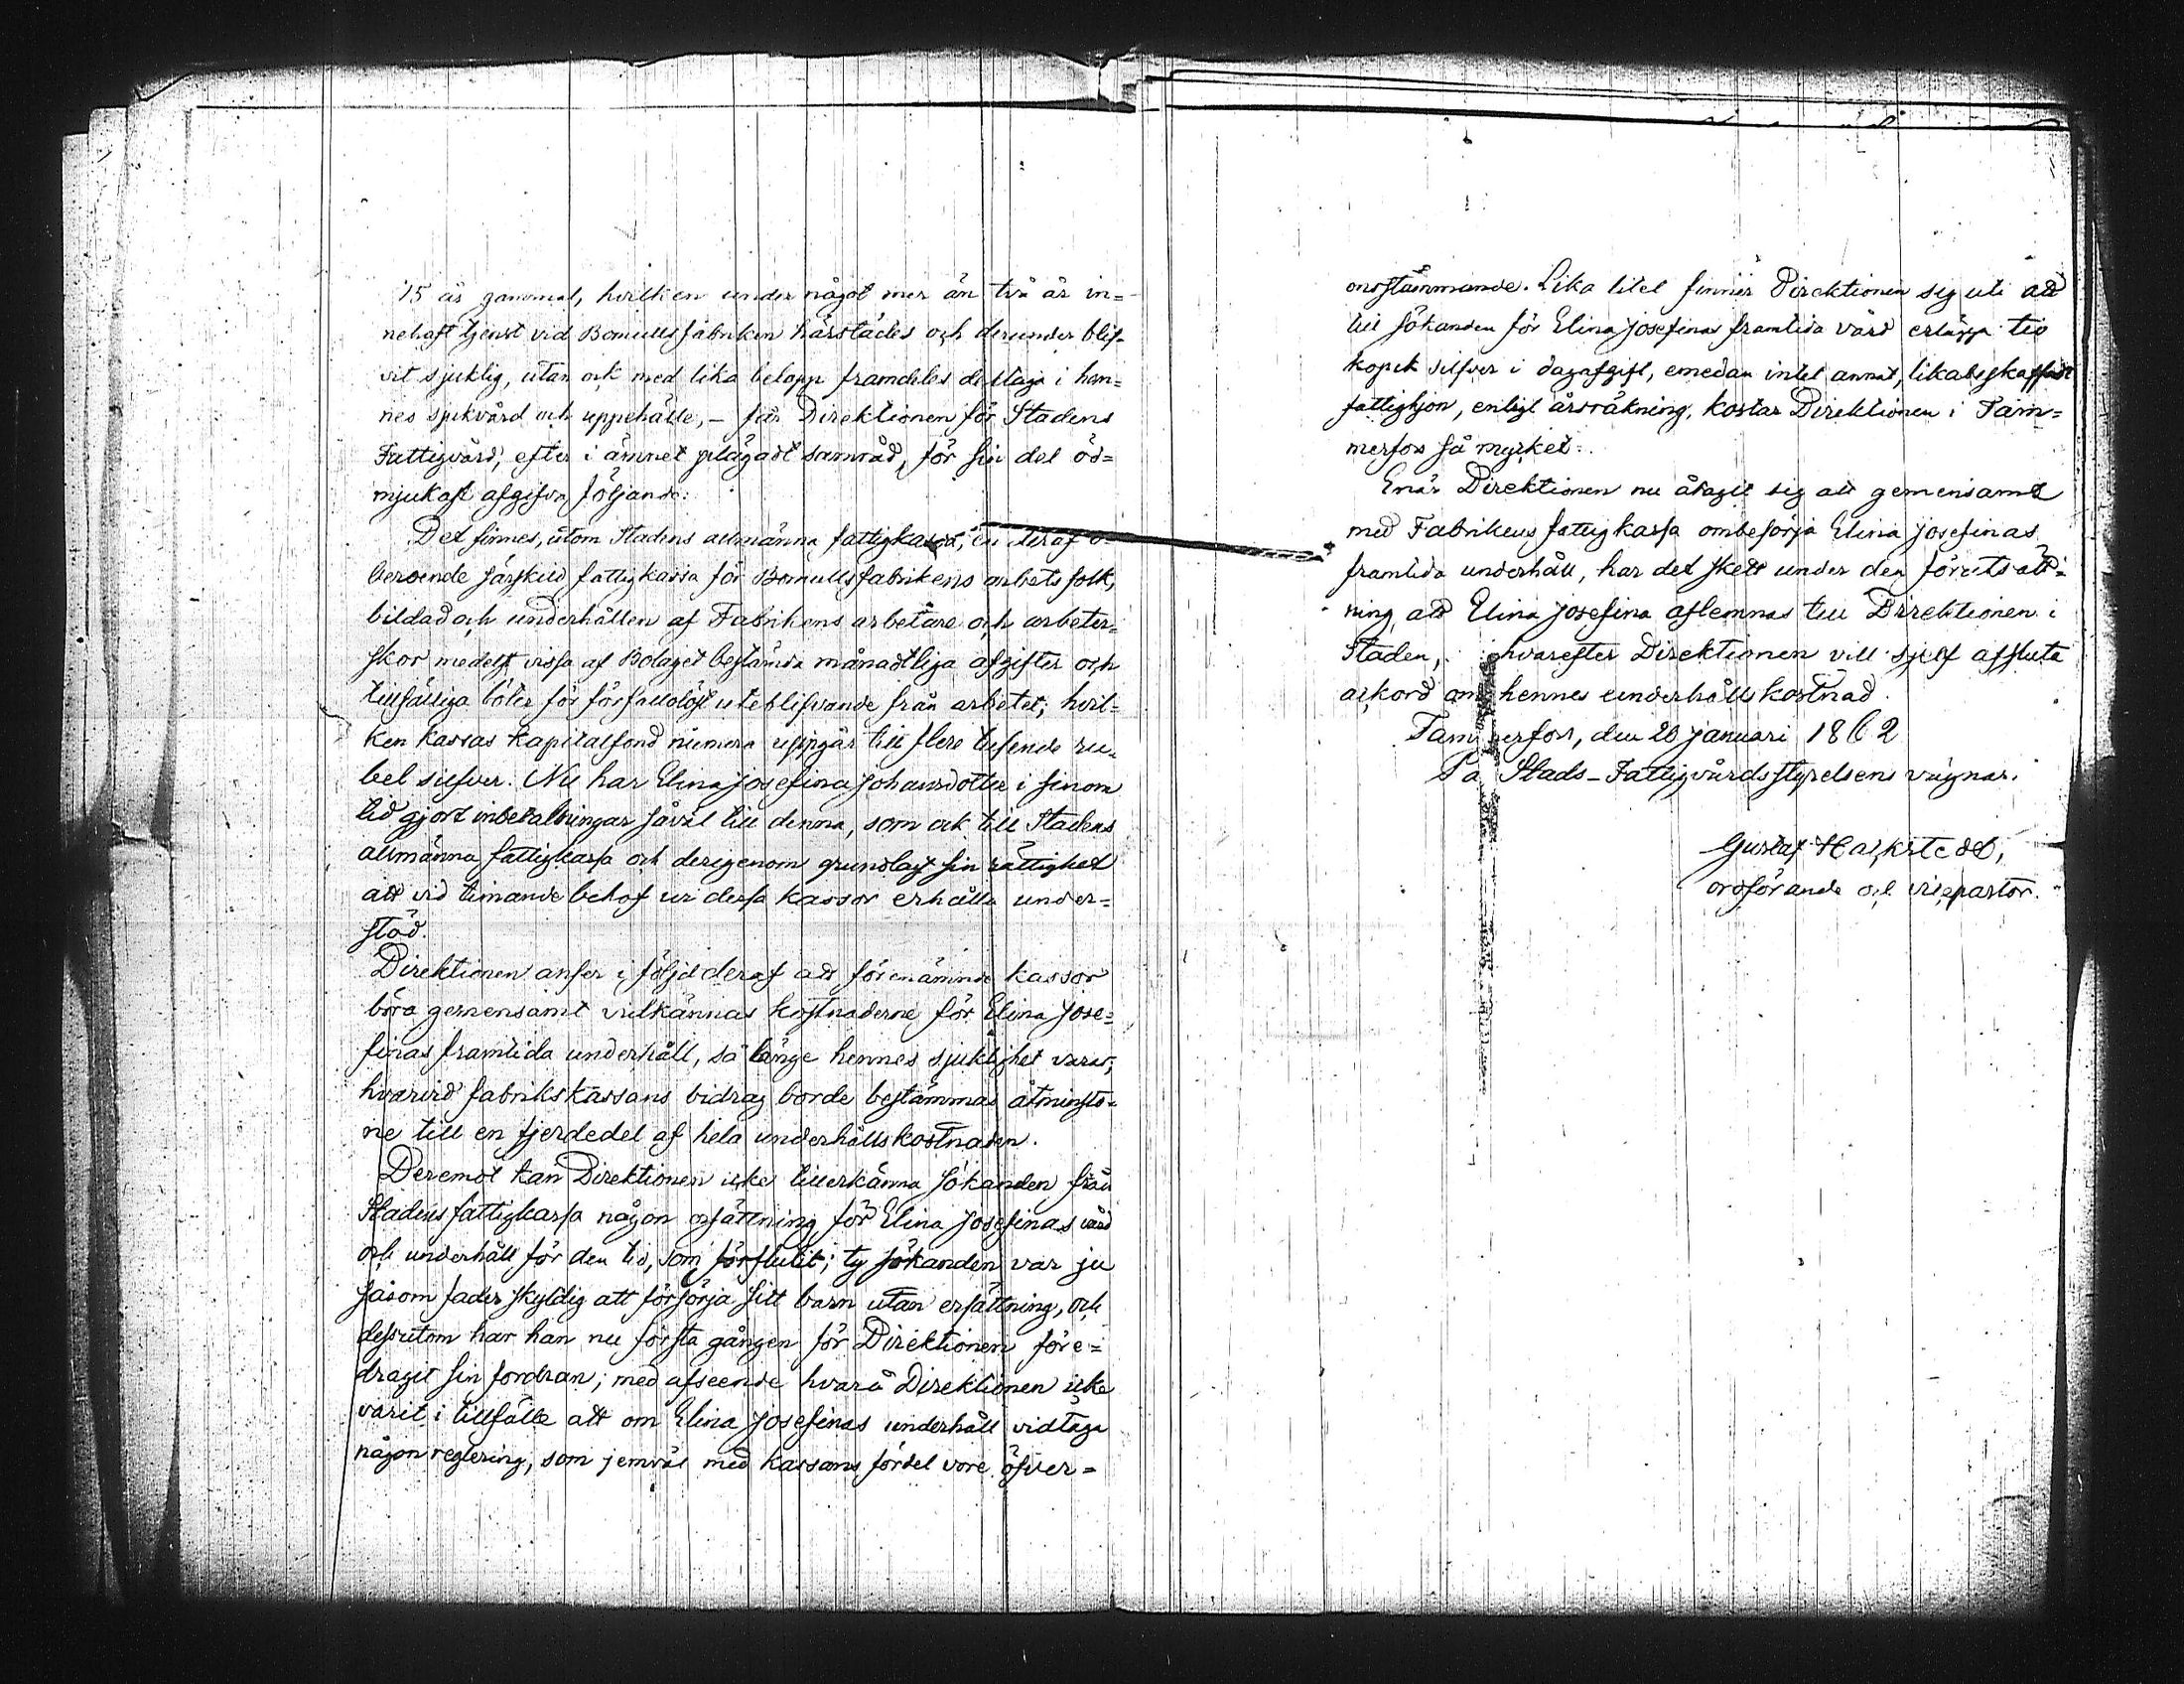 15 år gammal, hvilken under något mer än två år in=
nehaft tjenst vid Bomullsfabriken härstädes och derunder blif-
vit sjuklig, utan ock med lika belopp framdeles deltaga i hen=
nes sjukvård och uppehälle, – får Direktionen för Stadens
Fattigvård, efter i ämnet plägadt samråd, för sin del öd=
mjukast afgifva följande:
Det finnes, utom Stadens allmänna fattigkassa, en deraf o-
beroende särskild fattigkassa för Bomullsfabrikens arbetsfolk,
bildad och underhållen af Fabrikens arbetare och arbeter-
skor medelst vissa af Bolaget bestämda månadtliga afgifter och
tillfälliga böter för förfallolöst uteblifvande från arbetet; hvil=
ken kassas kapitalfond numera uppgår till flere tusende ru-
bel silfver. Nu har Elina Josefina Johansdotter i sinom
tid gjort inbetalningar såväl till denna, som ock till Stadens
allmänna fattigkassa och derigenom grundlagt sin rättighet
att vid timande behof ur dessa kassor erhålla under=
stöd.
Direktionen anser i följd deraf att förenämnde kassor
böra gemensamt vidkännas kostnaderne för Elina Jose=
finas framtida underhåll, så länge hennes sjuklighet varar;
hvarvid fabrikskassans bidrag borde bestämmas åtminsto-
ne till en fjerdedel af hela underhållskostnaden.
Deremot kan Direktionen icke tillerkänna sökanden från
Stadens fattigkassa någon ersättning för Elina Josefinas vård
och underhåll för den tid, som förflutit; ty sökanden var ju
såsom fader skyldig att försörja sitt barn utan ersättning, och
dessutom har han nu första gången för Direktionen före=
dragit sin fordran; med afseende hvarå Direktionen icke
varit i tillfälle att om Elina Josefinas underhåll vidtaga
någon reglering, som jemväl med kassans fördel vore öfver=
ensstämmande. Lika litet finner Direktionen sig uti att
till sökanden för Elina Josefinas framtida vård erlägga tio
kopek silfver i dagafgift, emedan intet annat, likabeskaffadt
fattighjon, enligt årsräkning, kostar Direktionen i Tam=
merfors så mycket.
Enär Direktionen nu åtagit sig att gemensamt
med Fabrikens fattigkassa ombesörja Elina Josefinas
framtida underhåll, har det skett under den förutsätt=
ning, att Elina Josefina aflemnas till Direktionen i
Staden, hvarefter Direktionen vill sjelf afsluta
ackord om hennes underhållskostnad.
Tammerfors, den 20 januari 1862
På Stads-Fattigvårdsstyrelsens vägnar.
Gustaf Hackstedt,
ordförande och vicepastor.